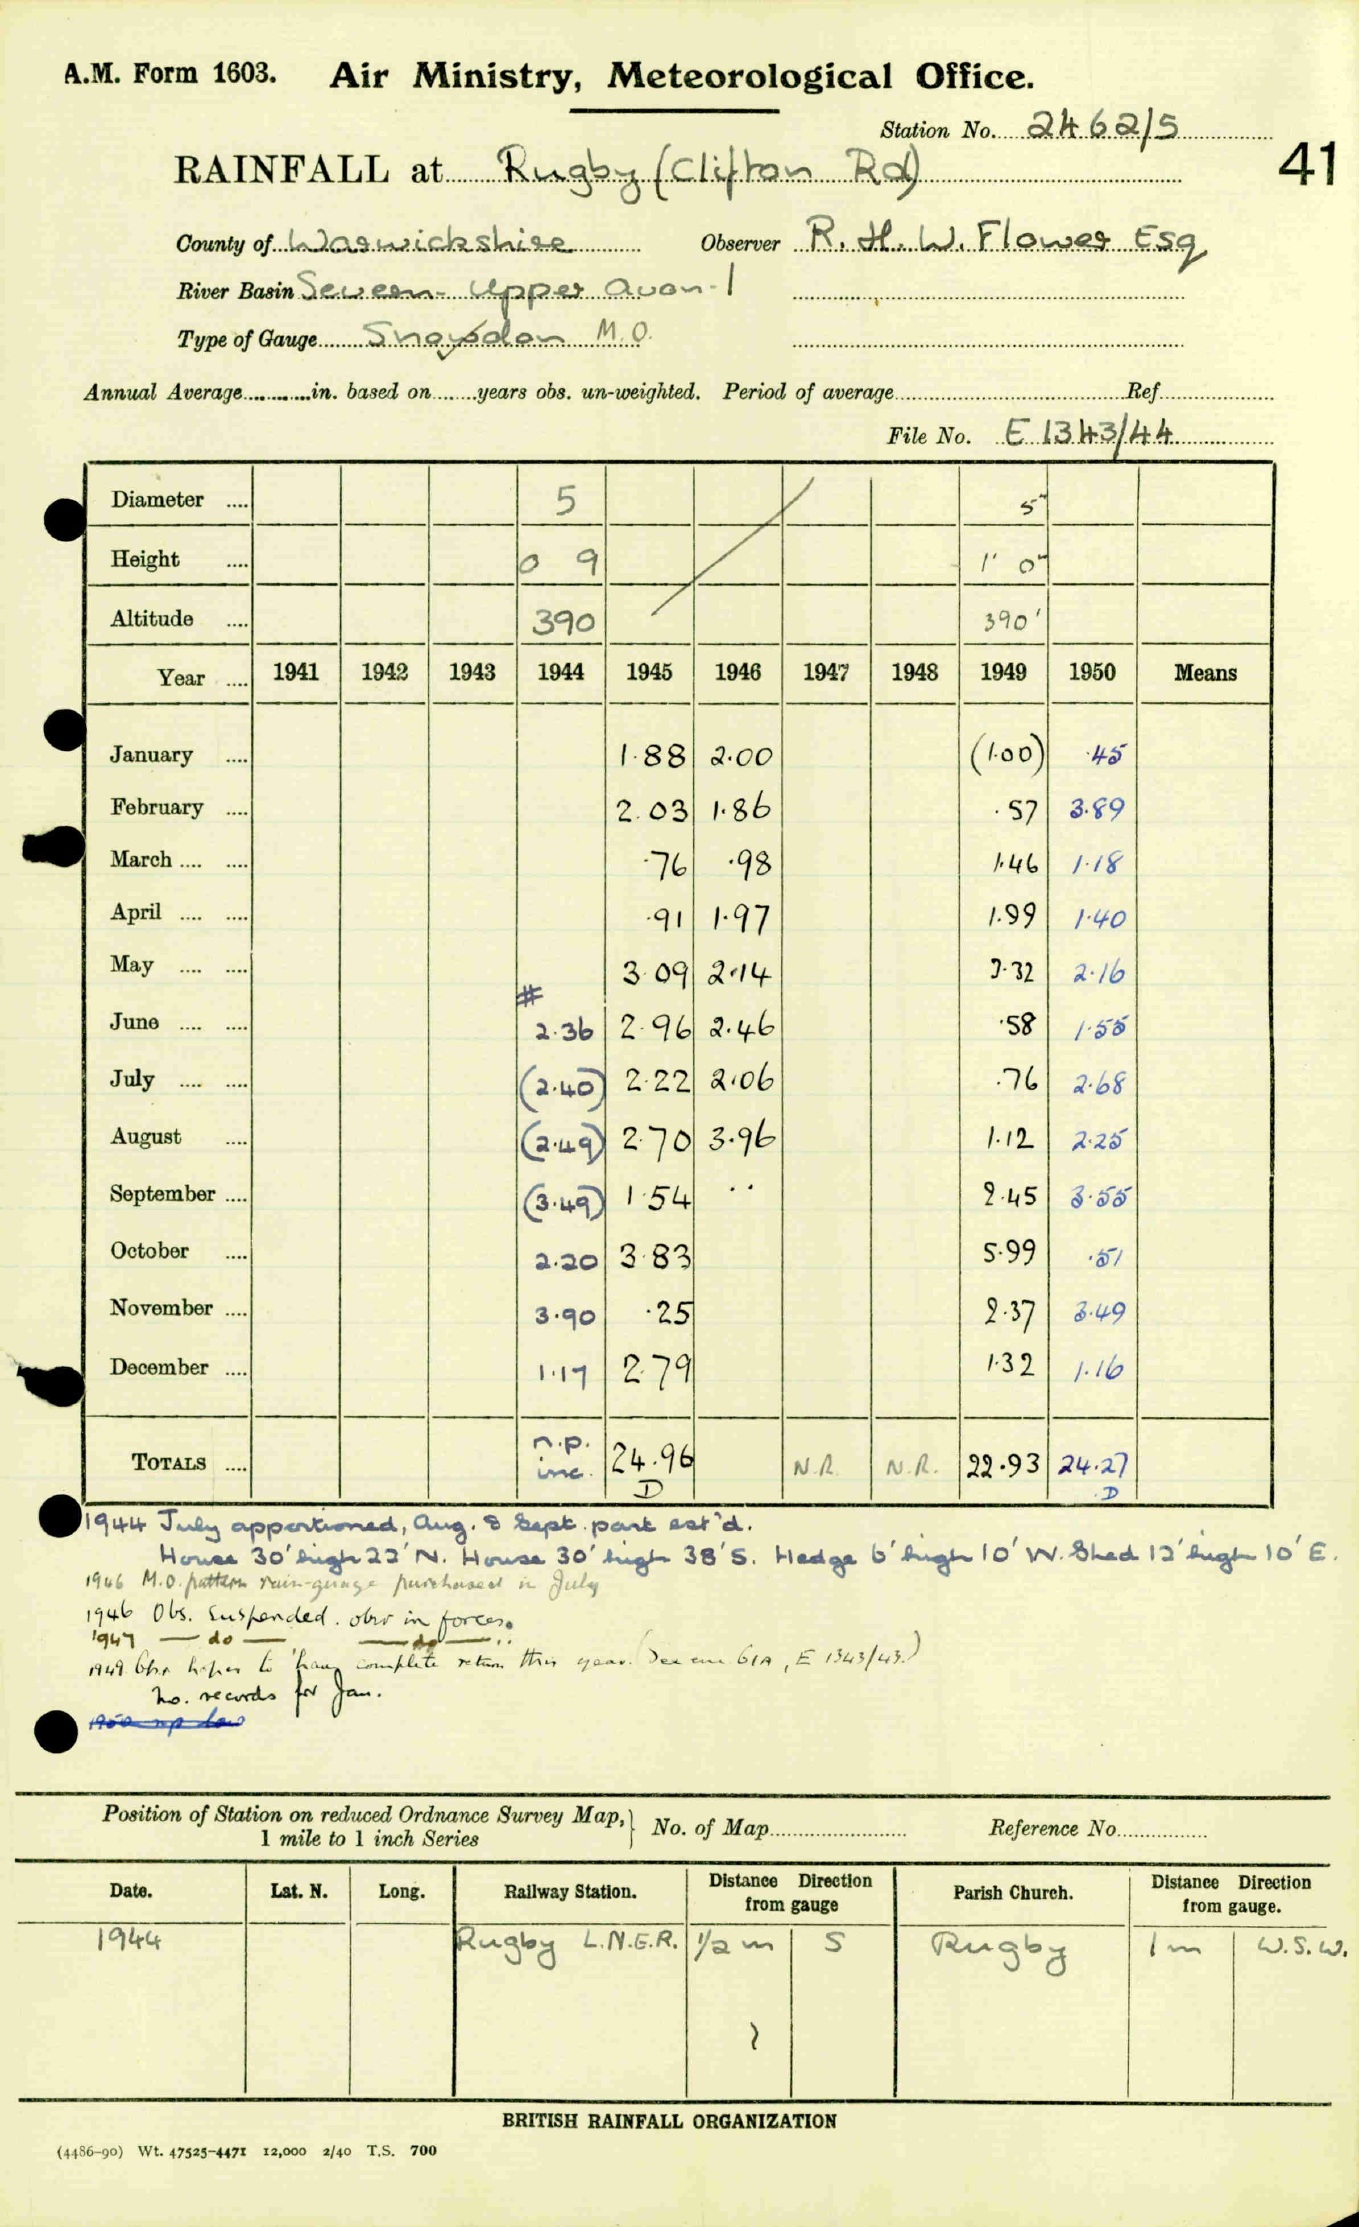 A.M. Form 1603. Air Ministry, Meteorological Office.
Station No. 2462/5
41
RAINFALL at Rugby (Clifton Rd)
County of Warwickshire Observer R. H. W. Flower Esq
River Basin Severn - Upper Avon - 1
Type of Gauge Snowdon M.O.
Annual Average in. based on years obs. un-weighted. Period of average Ref.
File No. E 1343/44
Diameter 5 5"
Height 0 9 1' 0"
Altitude 390 390'
Year 1941 1942 1943 1944 1945 1946 1947 1948 1949 1950 Means
January 1.88 2.00 (1.00) .45
February 2.03 1.86 .57 3.89
March .76 .98 1.46 1.18
April .91 1.97 1.99 1.40
May 3.09 2.14 3.32 2.16
#
June 2.36 2.96 2.46 .58 1.55
July (2.40) 2.22 2.06 .76 2.68
August (2.49) 2.70 3.96 1.12 2.25
September (3.49) 1.54 .. 2.45 3.55
October 2.20 3.83 5.99 .51
November 3.90 .25 2.37 3.49
December 1.17 2.79 1.32 1.16
TOTALS n.p. inc. 24.96 D N.R. N.R. 22.93 24.27 D
1944 July apportioned, Aug. & Sept. part est'd.
House 30' high 22' N. House 30' high 38' S. Hedge 6' high 10' W. Shed 12' high 10' E.
1946 M.O. pattern rain-guage purchased in July
1946 Obs. suspended. obsr in forces.
1947 — do — — do —
1949 Obsr hopes to have complete return this year. (See enc 61A, E 1343/43.)
No. records for Jan.
Position of Station on reduced Ordnance Survey Map, 1 mile to 1 inch Series No. of Map Reference No.
Date. Lat. N. Long. Railway Station. Distance Direction from gauge Parish Church. Distance Direction from gauge.
1944 Rugby L.N.E.R. 1/2 m S Rugby 1 m W.S.W.
BRITISH RAINFALL ORGANIZATION
(4486-90) Wt. 47525-4471 12,000 2/40 T.S. 700